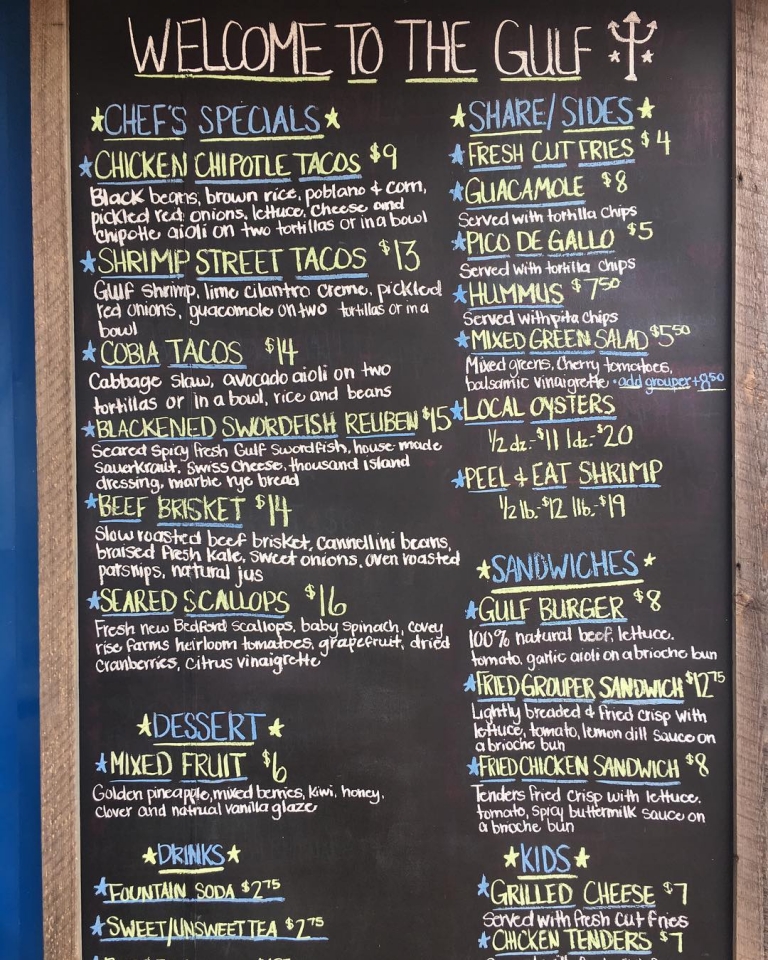 WELCOME TO THE GULF
CHEF'S SPECIALS
CHICKEN CHIPOTLE TACOS $9
Black beans, brown rice, poblano & corn,
pickled red onions, lettuce, cheese and
chipotle aioli on two tortillas or in a bowl
SHRIMP STREET TACOS $13
Gulf shrimp, lime cilantro creme, pickled
red onions, guacomole on two tortillas or in a
bowl
COBIA TACOS $14
Cabbage slaw, avocado aioli on two
tortillas or in a bowl, rice and beans
BLACKENED SWORDFISH REUBEN $15
Seared spicy fresh Gulf Swordfish, house made
sauerkraut, swiss cheese, thousand island
dressing, marble rye bread
BEEF BRISKET $14
Slow roasted beef brisket, cannellini beans,
braised fresh kale, sweet onions, oven roasted
parsnips, natural jus
SEARED SCALLOPS $16
Fresh new Bedford scallops, baby spinach, covey
rise farms heirloom tomatoes, grapefruit, dried
cranberries, citrus vinaigrette
DESSERT
MIXED FRUIT $6
Golden pineapple, mixed berries, kiwi, honey,
clover and natrual vanilla glaze
DRINKS
FOUNTAIN SODA $2.75
SWEET/UNSWEET TEA $2.75
SHARE/SIDES
FRESH CUT FRIES $4
GUACAMOLE $8
Served with tortilla chips
PICO DE GALLO $5
Served with tortilla chips
HUMMUS $7.50
Served with pita chips
MIXED GREEN SALAD $5.50
Mixed greens, cherry tomatoes,
balsamic vinaigrette • add grouper +8.50
LOCAL OYSTERS
1/2 dz.-$11 1dz.-$20
PEEL & EAT SHRIMP
1/2 lb.-$12 1lb.-$19
SANDWICHES
GULF BURGER $8
100% natural beef, lettuce,
tomato, garlic aioli on a brioche bun
FRIED GROUPER SANDWICH $12.75
Lightly breaded & fried crisp with
lettuce, tomato, lemon dill sauce on
a brioche bun
FRIED CHICKEN SANDWICH $8
Tenders fried crisp with lettuce,
tomato, spicy buttermilk sauce on
a brioche bun
KIDS
GRILLED CHEESE $7
Served with fresh cut fries
CHICKEN TENDERS $7